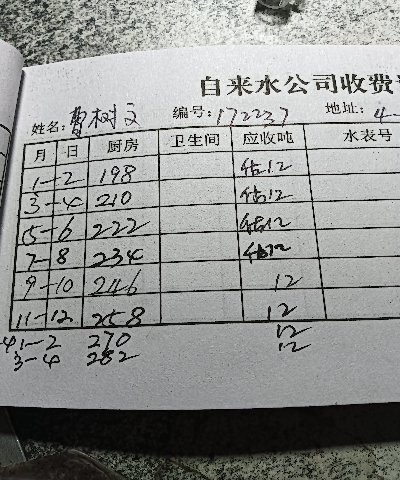 自来水公司收费
姓名：曹树文 编号：172237 地址：4-
月 日 厨房 卫生间 应收吨 水表号
1-2 198 估12
3-4 210 估12
5-6 222 估12
7-8 234 估12
9-10 246 12
11-12 258 12
1-2 270 12
3-4 282 12